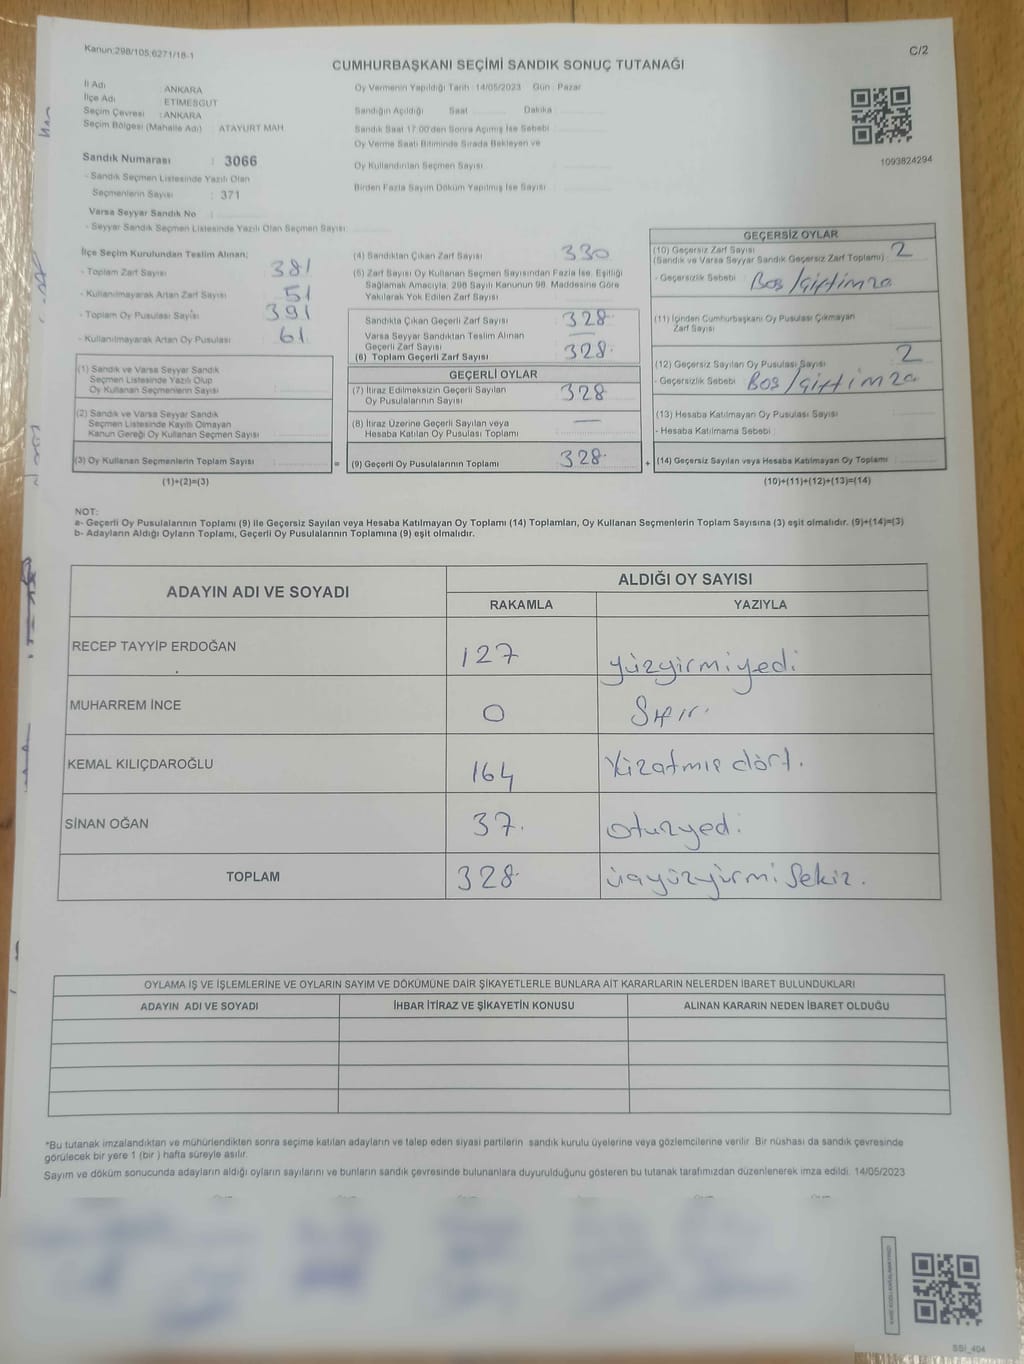 Kanun:298/105,6271/18-1
C/2
CUMHURBAŞKANI SEÇİMİ SANDIK SONUÇ TUTANAĞI
İl Adı : ANKARA
İlçe Adı : ETİMESGUT
Seçim Çevresi : ANKARA
Seçim Bölgesi (Mahalle Adı) : ATAYURT MAH
Sandık Numarası : 3066
- Sandık Seçmen Listesinde Yazılı Olan
Seçmenlerin Sayısı : 371
Varsa Seyyar Sandık No :
- Seyyar Sandık Seçmen Listesinde Yazılı Olan Seçmen Sayısı:
Oy Vermenin Yapıldığı Tarih : 14/05/2023 Gün : Pazar
Sandığın Açıldığı Saat Dakika
Sandık Saat 17:00'den Sonra Açılmış İse Sebebi :
Oy Verme Saati Bitiminde Sırada Bekleyen ve
Oy Kullandırılan Seçmen Sayısı :
Birden Fazla Sayım Döküm Yapılmış İse Sayısı :
1093824294
İlçe Seçim Kurulundan Teslim Alınan;
- Toplam Zarf Sayısı 381
- Kullanılmayarak Artan Zarf Sayısı 51
- Toplam Oy Pusulası Sayısı 391
- Kullanılmayarak Artan Oy Pusulası 61
(1) Sandık ve Varsa Seyyar Sandık
Seçmen Listesinde Yazılı Olup
Oy Kullanan Seçmenlerin Sayısı
(2) Sandık ve Varsa Seyyar Sandık
Seçmen Listesinde Kayıtlı Olmayan
Kanun Gereği Oy Kullanan Seçmen Sayısı
(3) Oy Kullanan Seçmenlerin Toplam Sayısı
(1)+(2)=(3)
(4) Sandıktan Çıkan Zarf Sayısı 330
(5) Zarf Sayısı Oy Kullanan Seçmen Sayısından Fazla İse, Eşitliği
Sağlamak Amacıyla, 298 Sayılı Kanunun 98. Maddesine Göre
Yakılarak Yok Edilen Zarf Sayısı
Sandıkta Çıkan Geçerli Zarf Sayısı 328
Varsa Seyyar Sandıktan Teslim Alınan
Geçerli Zarf Sayısı —
(6) Toplam Geçerli Zarf Sayısı 328
GEÇERLİ OYLAR
(7) İtiraz Edilmeksizin Geçerli Sayılan
Oy Pusulalarının Sayısı 328
(8) İtiraz Üzerine Geçerli Sayılan veya
Hesaba Katılan Oy Pusulası Toplamı —
= (9) Geçerli Oy Pusulalarının Toplamı 328
GEÇERSİZ OYLAR
(10) Geçersiz Zarf Sayısı 2
(Sandık ve Varsa Seyyar Sandık Geçersiz Zarf Toplamı)
- Geçersizlik Sebebi Boş/Çiftimza
(11) İçinden Cumhurbaşkanı Oy Pusulası Çıkmayan
Zarf Sayısı
(12) Geçersiz Sayılan Oy Pusulası Sayısı 2
- Geçersizlik Sebebi Boş/Çiftimza
(13) Hesaba Katılmayan Oy Pusulası Sayısı
- Hesaba Katılmama Sebebi
+ (14) Geçersiz Sayılan veya Hesaba Katılmayan Oy Toplamı
(10)+(11)+(12)+(13)=(14)
NOT:
a- Geçerli Oy Pusulalarının Toplamı (9) ile Geçersiz Sayılan veya Hesaba Katılmayan Oy Toplamı (14) Toplamları, Oy Kullanan Seçmenlerin Toplam Sayısına (3) eşit olmalıdır. (9)+(14)=(3)
b- Adayların Aldığı Oyların Toplamı, Geçerli Oy Pusulalarının Toplamına (9) eşit olmalıdır.
ADAYIN ADI VE SOYADI
ALDIĞI OY SAYISI
RAKAMLA YAZIYLA
RECEP TAYYİP ERDOĞAN 127 yüzyirmiyedi
MUHARREM İNCE 0 Sıfır.
KEMAL KILIÇDAROĞLU 164 Yüzatmış dört.
SİNAN OĞAN 37. otuzyedi
TOPLAM 328 üçyüzyirmi Sekiz.
OYLAMA İŞ VE İŞLEMLERİNE VE OYLARIN SAYIM VE DÖKÜMÜNE DAİR ŞİKAYETLERLE BUNLARA AİT KARARLARIN NELERDEN İBARET BULUNDUKLARI
ADAYIN ADI VE SOYADI İHBAR İTİRAZ VE ŞİKAYETİN KONUSU ALINAN KARARIN NEDEN İBARET OLDUĞU
*Bu tutanak imzalandıktan ve mühürlendikten sonra seçime katılan adayların ve talep eden siyasi partilerin sandık kurulu üyelerine veya gözlemcilerine verilir. Bir nüshası da sandık çevresinde
görülecek bir yere 1 (bir ) hafta süreyle asılır.
Sayım ve döküm sonucunda adayların aldığı oyların sayılarını ve bunların sandık çevresinde bulunanlara duyurulduğunu gösteren bu tutanak tarafımızdan düzenlenerek imza edildi. 14/05/2023
SSI_404